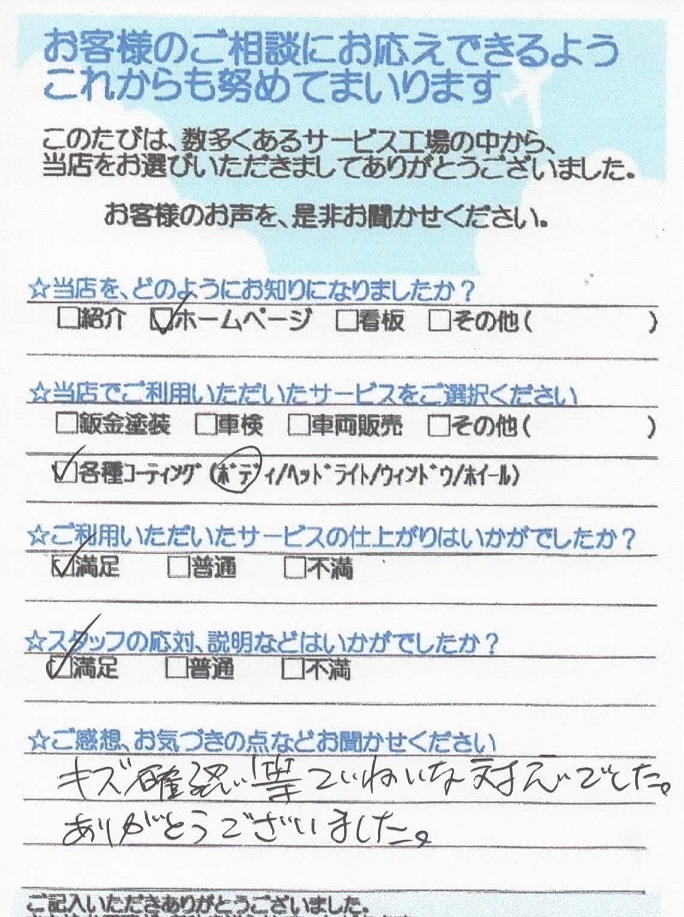 お客様のご相談にお応えできるよう
これからも努めてまいります
このたびは、数多くあるサービス工場の中から、
当店をお選びいただきましてありがとうございました。
お客様のお声を、是非お聞かせください。
☆当店を、どのようにお知りになりましたか？
□紹介 ☑ホームページ □看板 □その他( )
☆当店でご利用いただいたサービスをご選択ください
□鈑金塗装 □車検 □車両販売 □その他( )
☑各種ｺｰﾃｨﾝｸﾞ(ﾎﾞﾃﾞｨ/ﾍｯﾄﾞﾗｲﾄ/ｳｨﾝﾄﾞｳ/ﾎｲｰﾙ)
☆ご利用いただいたサービスの仕上がりはいかがでしたか？
☑満足 □普通 □不満
☆スタッフの応対、説明などはいかがでしたか？
☑満足 □普通 □不満
☆ご感想、お気づきの点などお聞かせください
キズ確認等ていねいな対応でした。
ありがとうございました。
ご記入いただきありがとうございました。